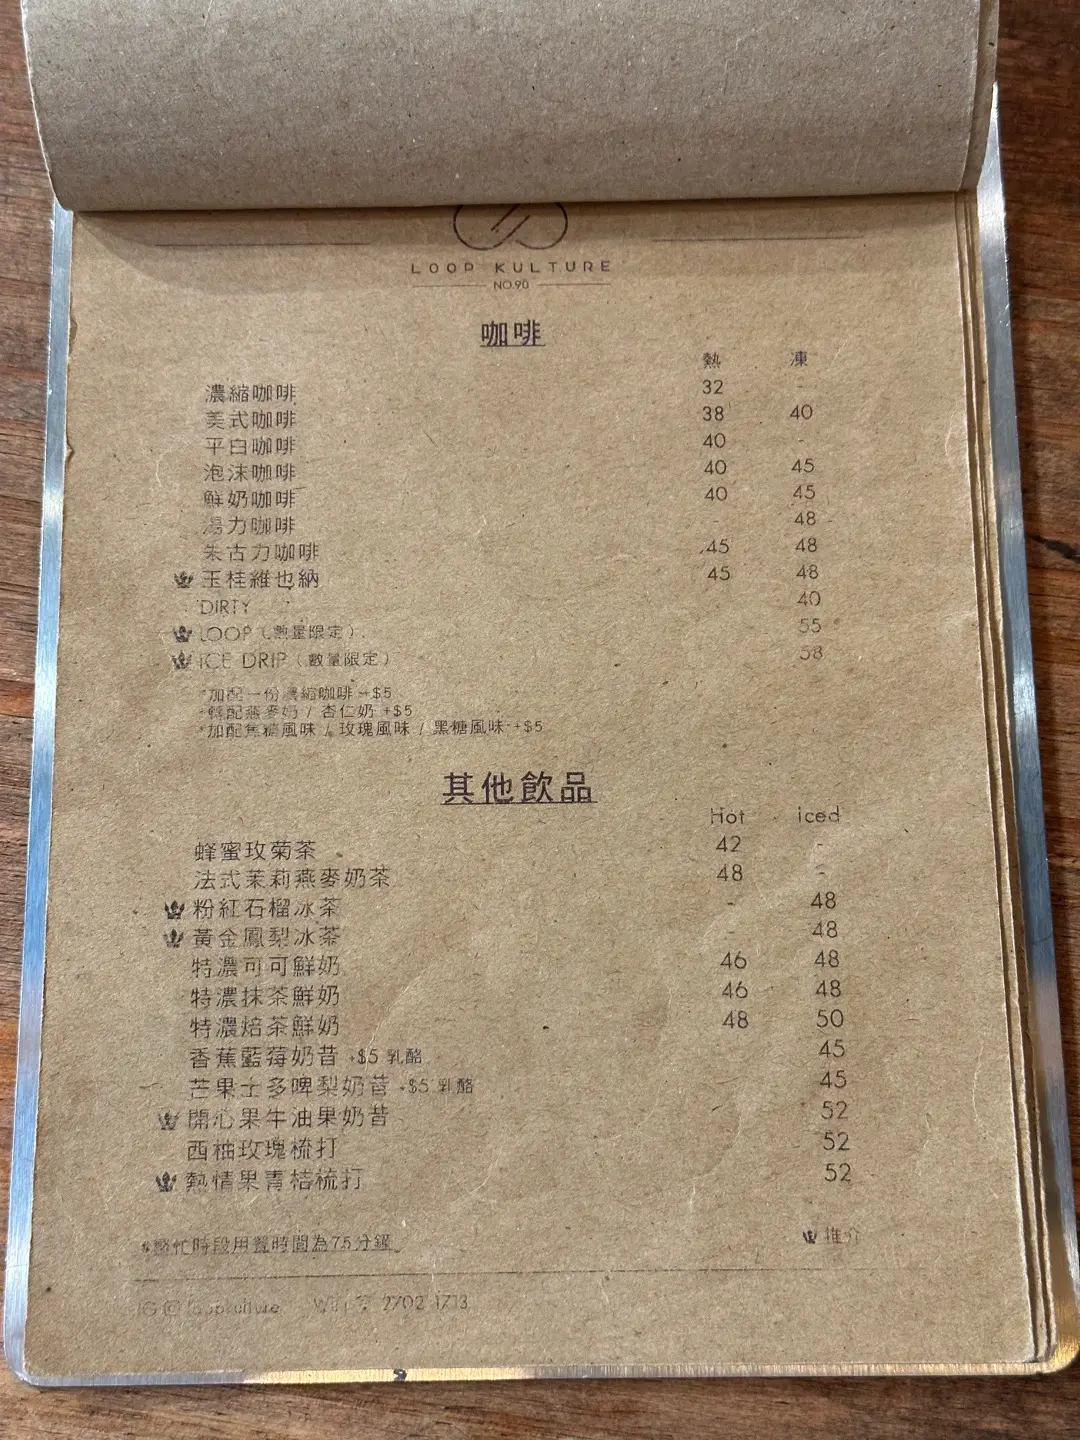 LOOP KULTURE
NO.90
咖啡
熱 凍
濃縮咖啡 32 -
美式咖啡 38 40
平白咖啡 40 -
泡沫咖啡 40 45
鮮奶咖啡 40 45
湯力咖啡 - 48
朱古力咖啡 45 48
玉桂維也納 45 48
DIRTY 40
LOOP (數量限定) 55
ICE DRIP (數量限定) 58
*加配一份濃縮咖啡 +$5
*轉配燕麥奶 / 杏仁奶 +$5
*加配焦糖風味 / 玫瑰風味 / 黑糖風味 +$5
其他飲品
Hot iced
蜂蜜玫菊茶 42 -
法式茉莉燕麥奶茶 48 -
粉紅石榴冰茶 - 48
黃金鳳梨冰茶 - 48
特濃可可鮮奶 46 48
特濃抹茶鮮奶 46 48
特濃焙茶鮮奶 48 50
香蕉藍莓奶昔 +$5 乳酪 45
芒果士多啤梨奶昔 +$5 乳酪 45
開心果牛油果奶昔 52
西柚玫瑰梳打 52
熱情果青桔梳打 52
推介
*繁忙時段用餐時間為75分鐘
IG loopkulture 2702 1713